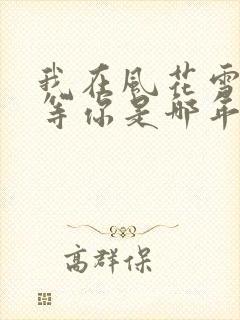 我在風花雪
等你是哪年
高群保